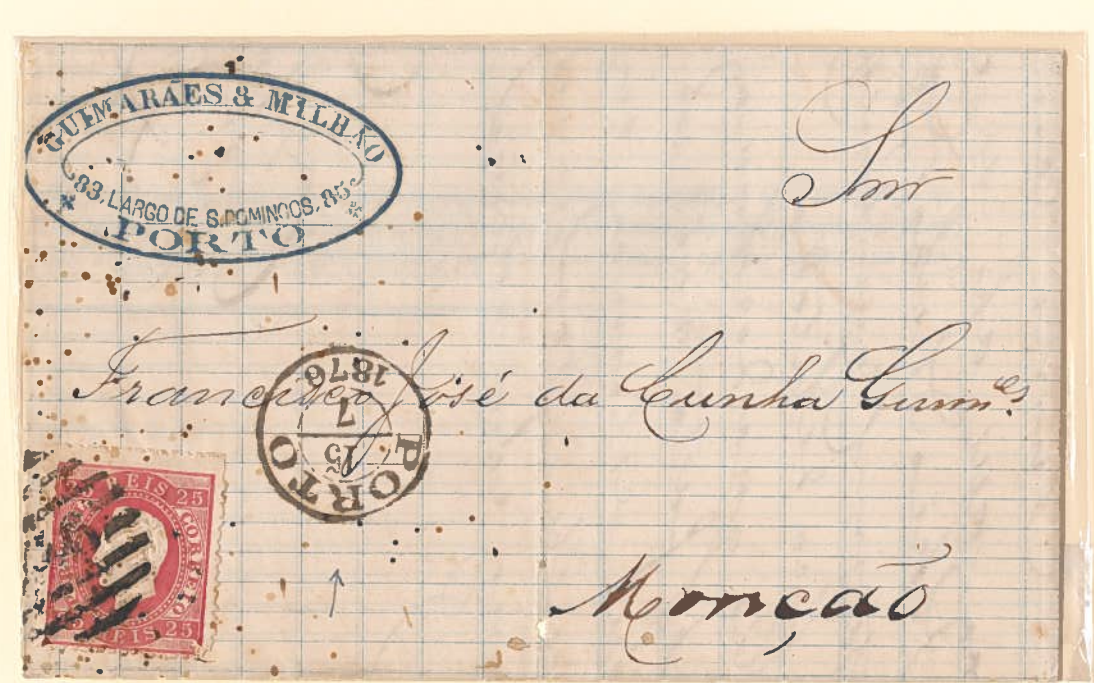 GUIMARÃES & MILHÃO
83, LARGO DE S. DOMINGOS, 85
PORTO
Snr
Francisco José da Cunha Guimes
1876
7
15
PORTO
25 REIS 25
CORREIO
25 REIS 25
Monção